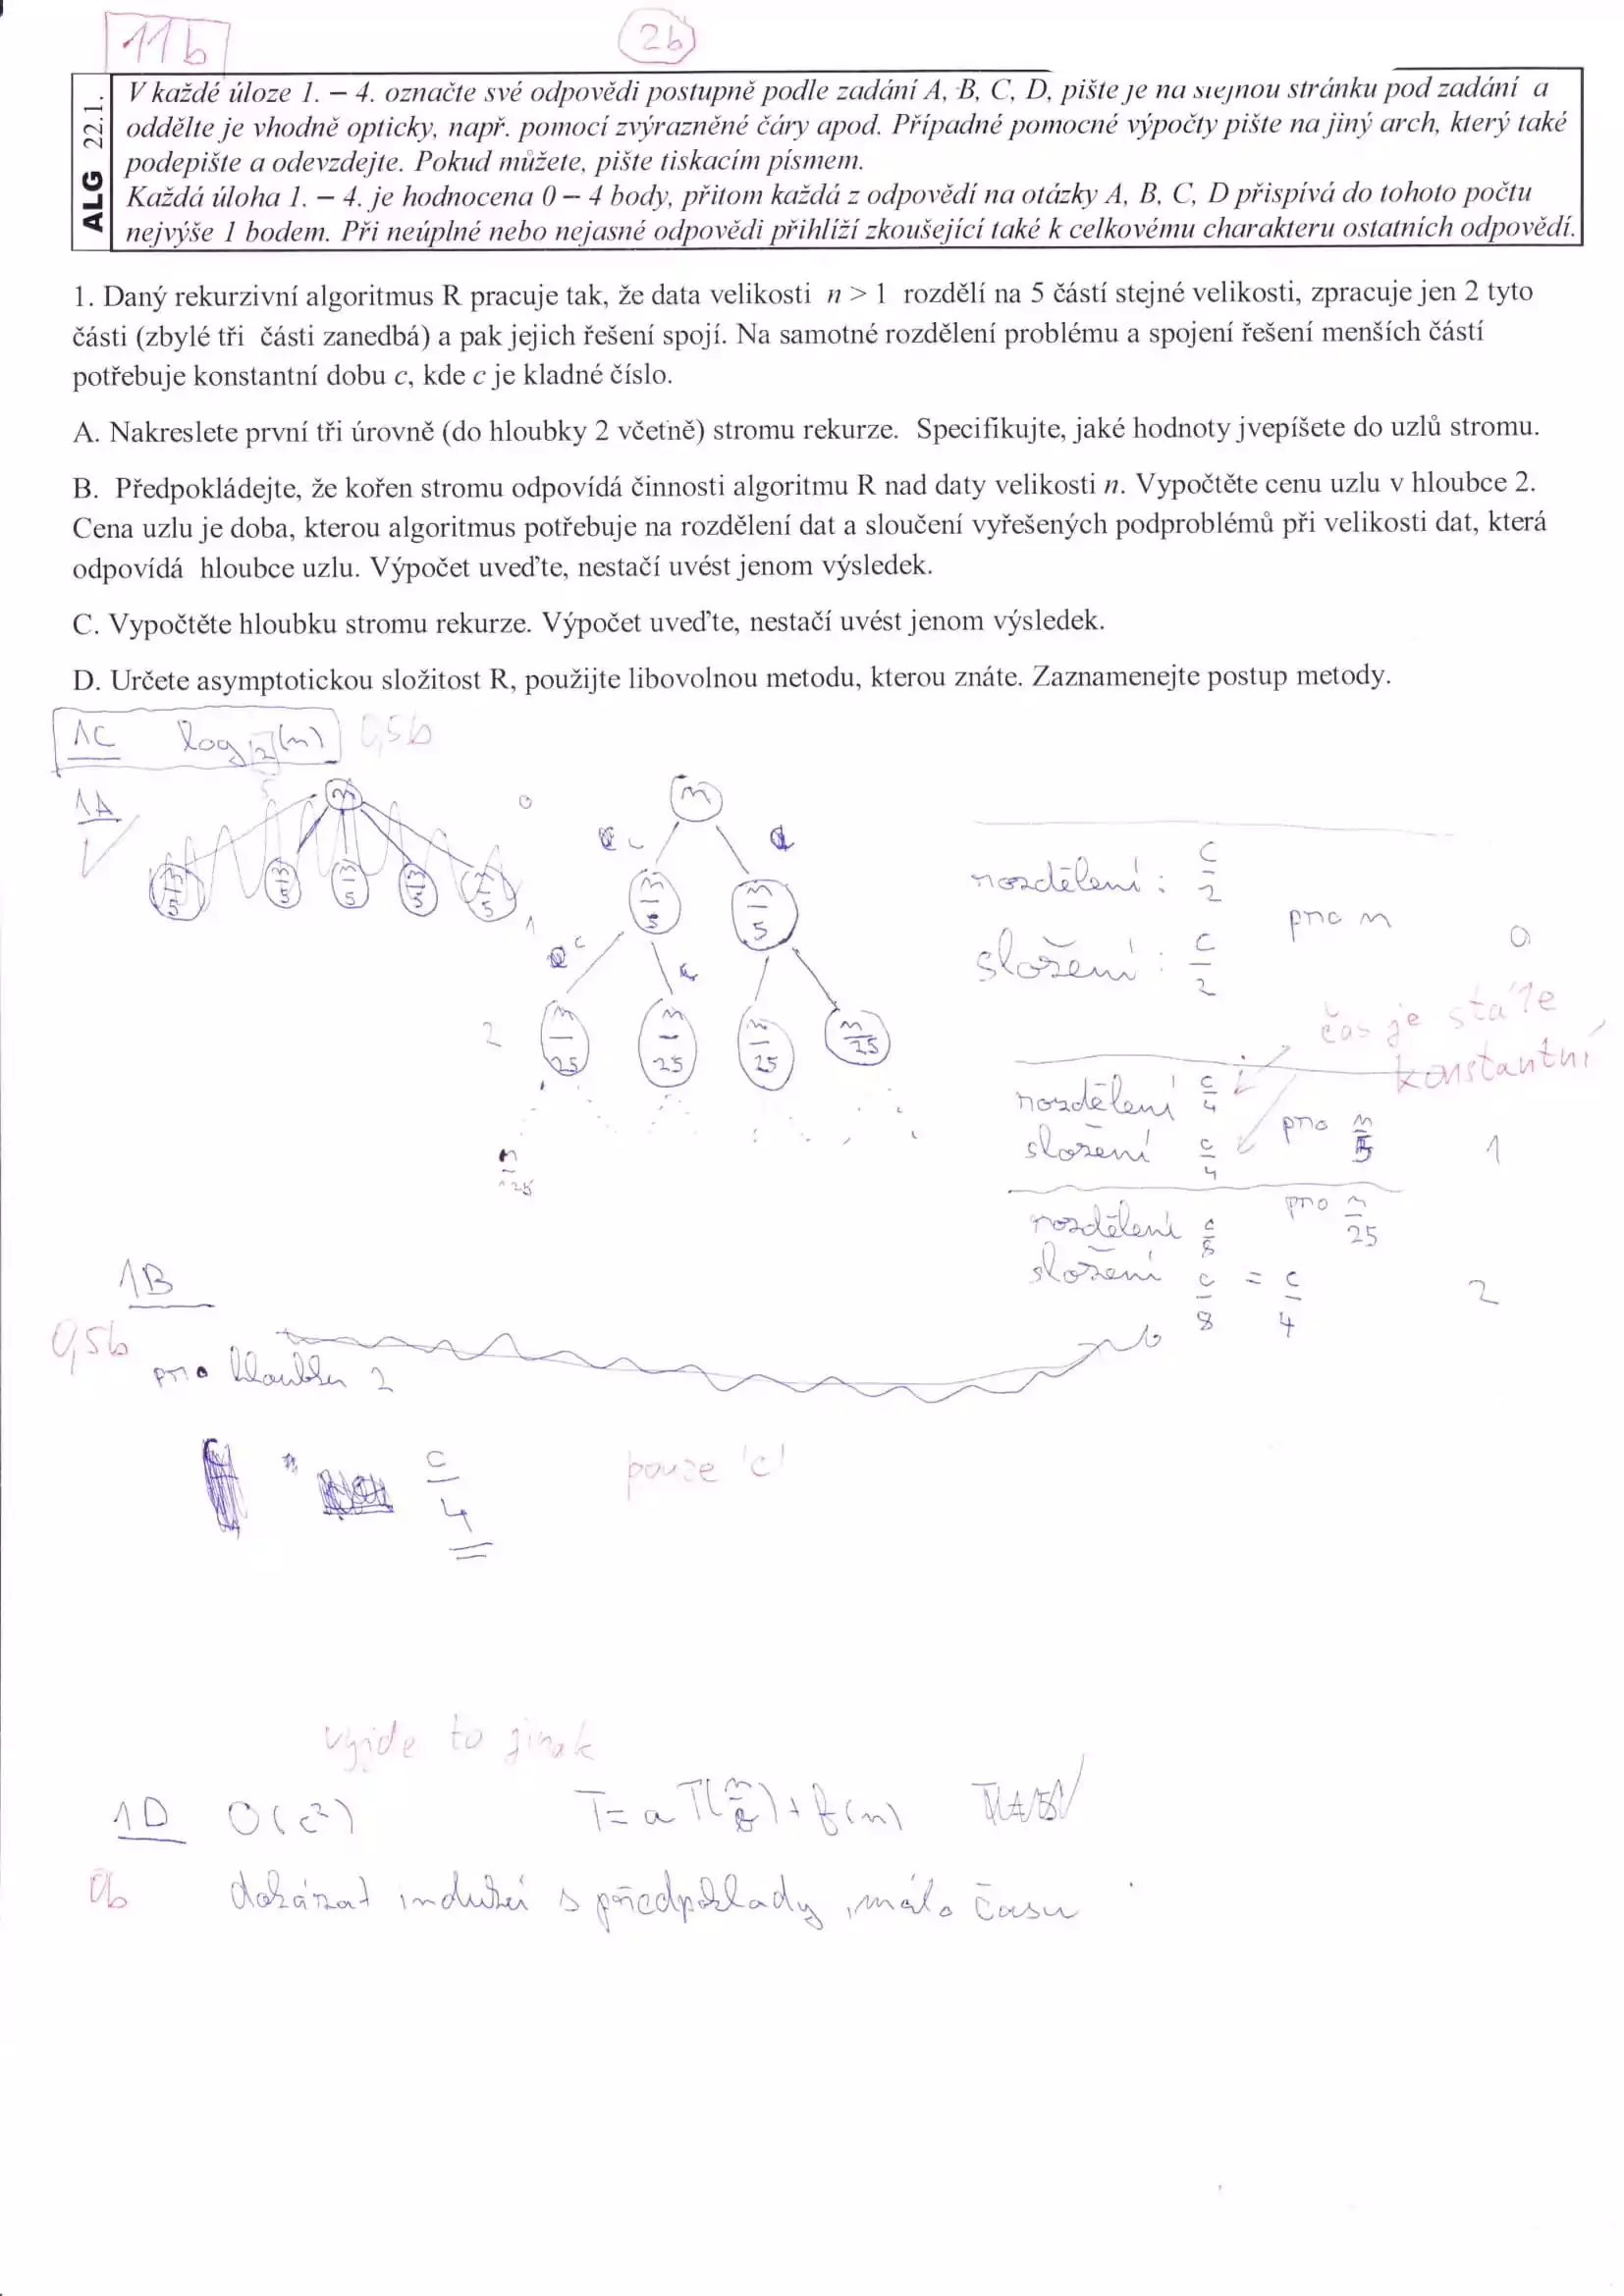 11b
2b
ALG 22.1.
V každé úloze 1. – 4. označte své odpovědi postupně podle zadání A, B, C, D, pište je na stejnou stránku pod zadání a
oddělte je vhodně opticky, např. pomocí zvýrazněné čáry apod. Případné pomocné výpočty pište na jiný arch, který také
podepište a odevzdejte. Pokud můžete, pište tiskacím písmem.
Každá úloha 1. – 4. je hodnocena 0 – 4 body, přitom každá z odpovědí na otázky A, B, C, D přispívá do tohoto počtu
nejvýše 1 bodem. Při neúplné nebo nejasné odpovědi přihlíží zkoušející také k celkovému charakteru ostatních odpovědí.
1. Daný rekurzivní algoritmus R pracuje tak, že data velikosti n > 1 rozdělí na 5 částí stejné velikosti, zpracuje jen 2 tyto
části (zbylé tři části zanedbá) a pak jejich řešení spojí. Na samotné rozdělení problému a spojení řešení menších částí
potřebuje konstantní dobu c, kde c je kladné číslo.
A. Nakreslete první tři úrovně (do hloubky 2 včetně) stromu rekurze. Specifikujte, jaké hodnoty jvepíšete do uzlů stromu.
B. Předpokládejte, že kořen stromu odpovídá činnosti algoritmu R nad daty velikosti n. Vypočtěte cenu uzlu v hloubce 2.
Cena uzlu je doba, kterou algoritmus potřebuje na rozdělení dat a sloučení vyřešených podproblémů při velikosti dat, která
odpovídá hloubce uzlu. Výpočet uveďte, nestačí uvést jenom výsledek.
C. Vypočtěte hloubku stromu rekurze. Výpočet uveďte, nestačí uvést jenom výsledek.
D. Určete asymptotickou složitost R, použijte libovolnou metodu, kterou znáte. Zaznamenejte postup metody.
1C log2(n) 0,5b
5
1A
n
n/5 n/5 n/5 n/5 n/5
0
n
c
1
n/5 n/5
c c
2
n/25 n/25 n/25 n/25
n/25
rozdělení: c/2
pro n 0
složení: c/2
čas je stále
konstantní
rozdělení c/4
pro n/5 1
složení c/4
rozdělení c/8 pro n/25
složení c/8 = c/4 2
1B
0,5b
pro hloubku 2
c/4
pouze 'c'
vyjde to jinak
1D O(c²) T = a T(n/b) + f(n)
0b
dokázat indukcí s předpoklady, málo času